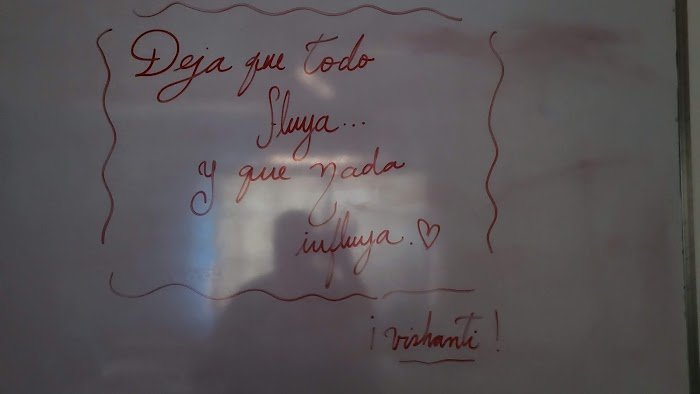 Deja que todo
fluya...
y que nada
influya.♡
¡vishanti!